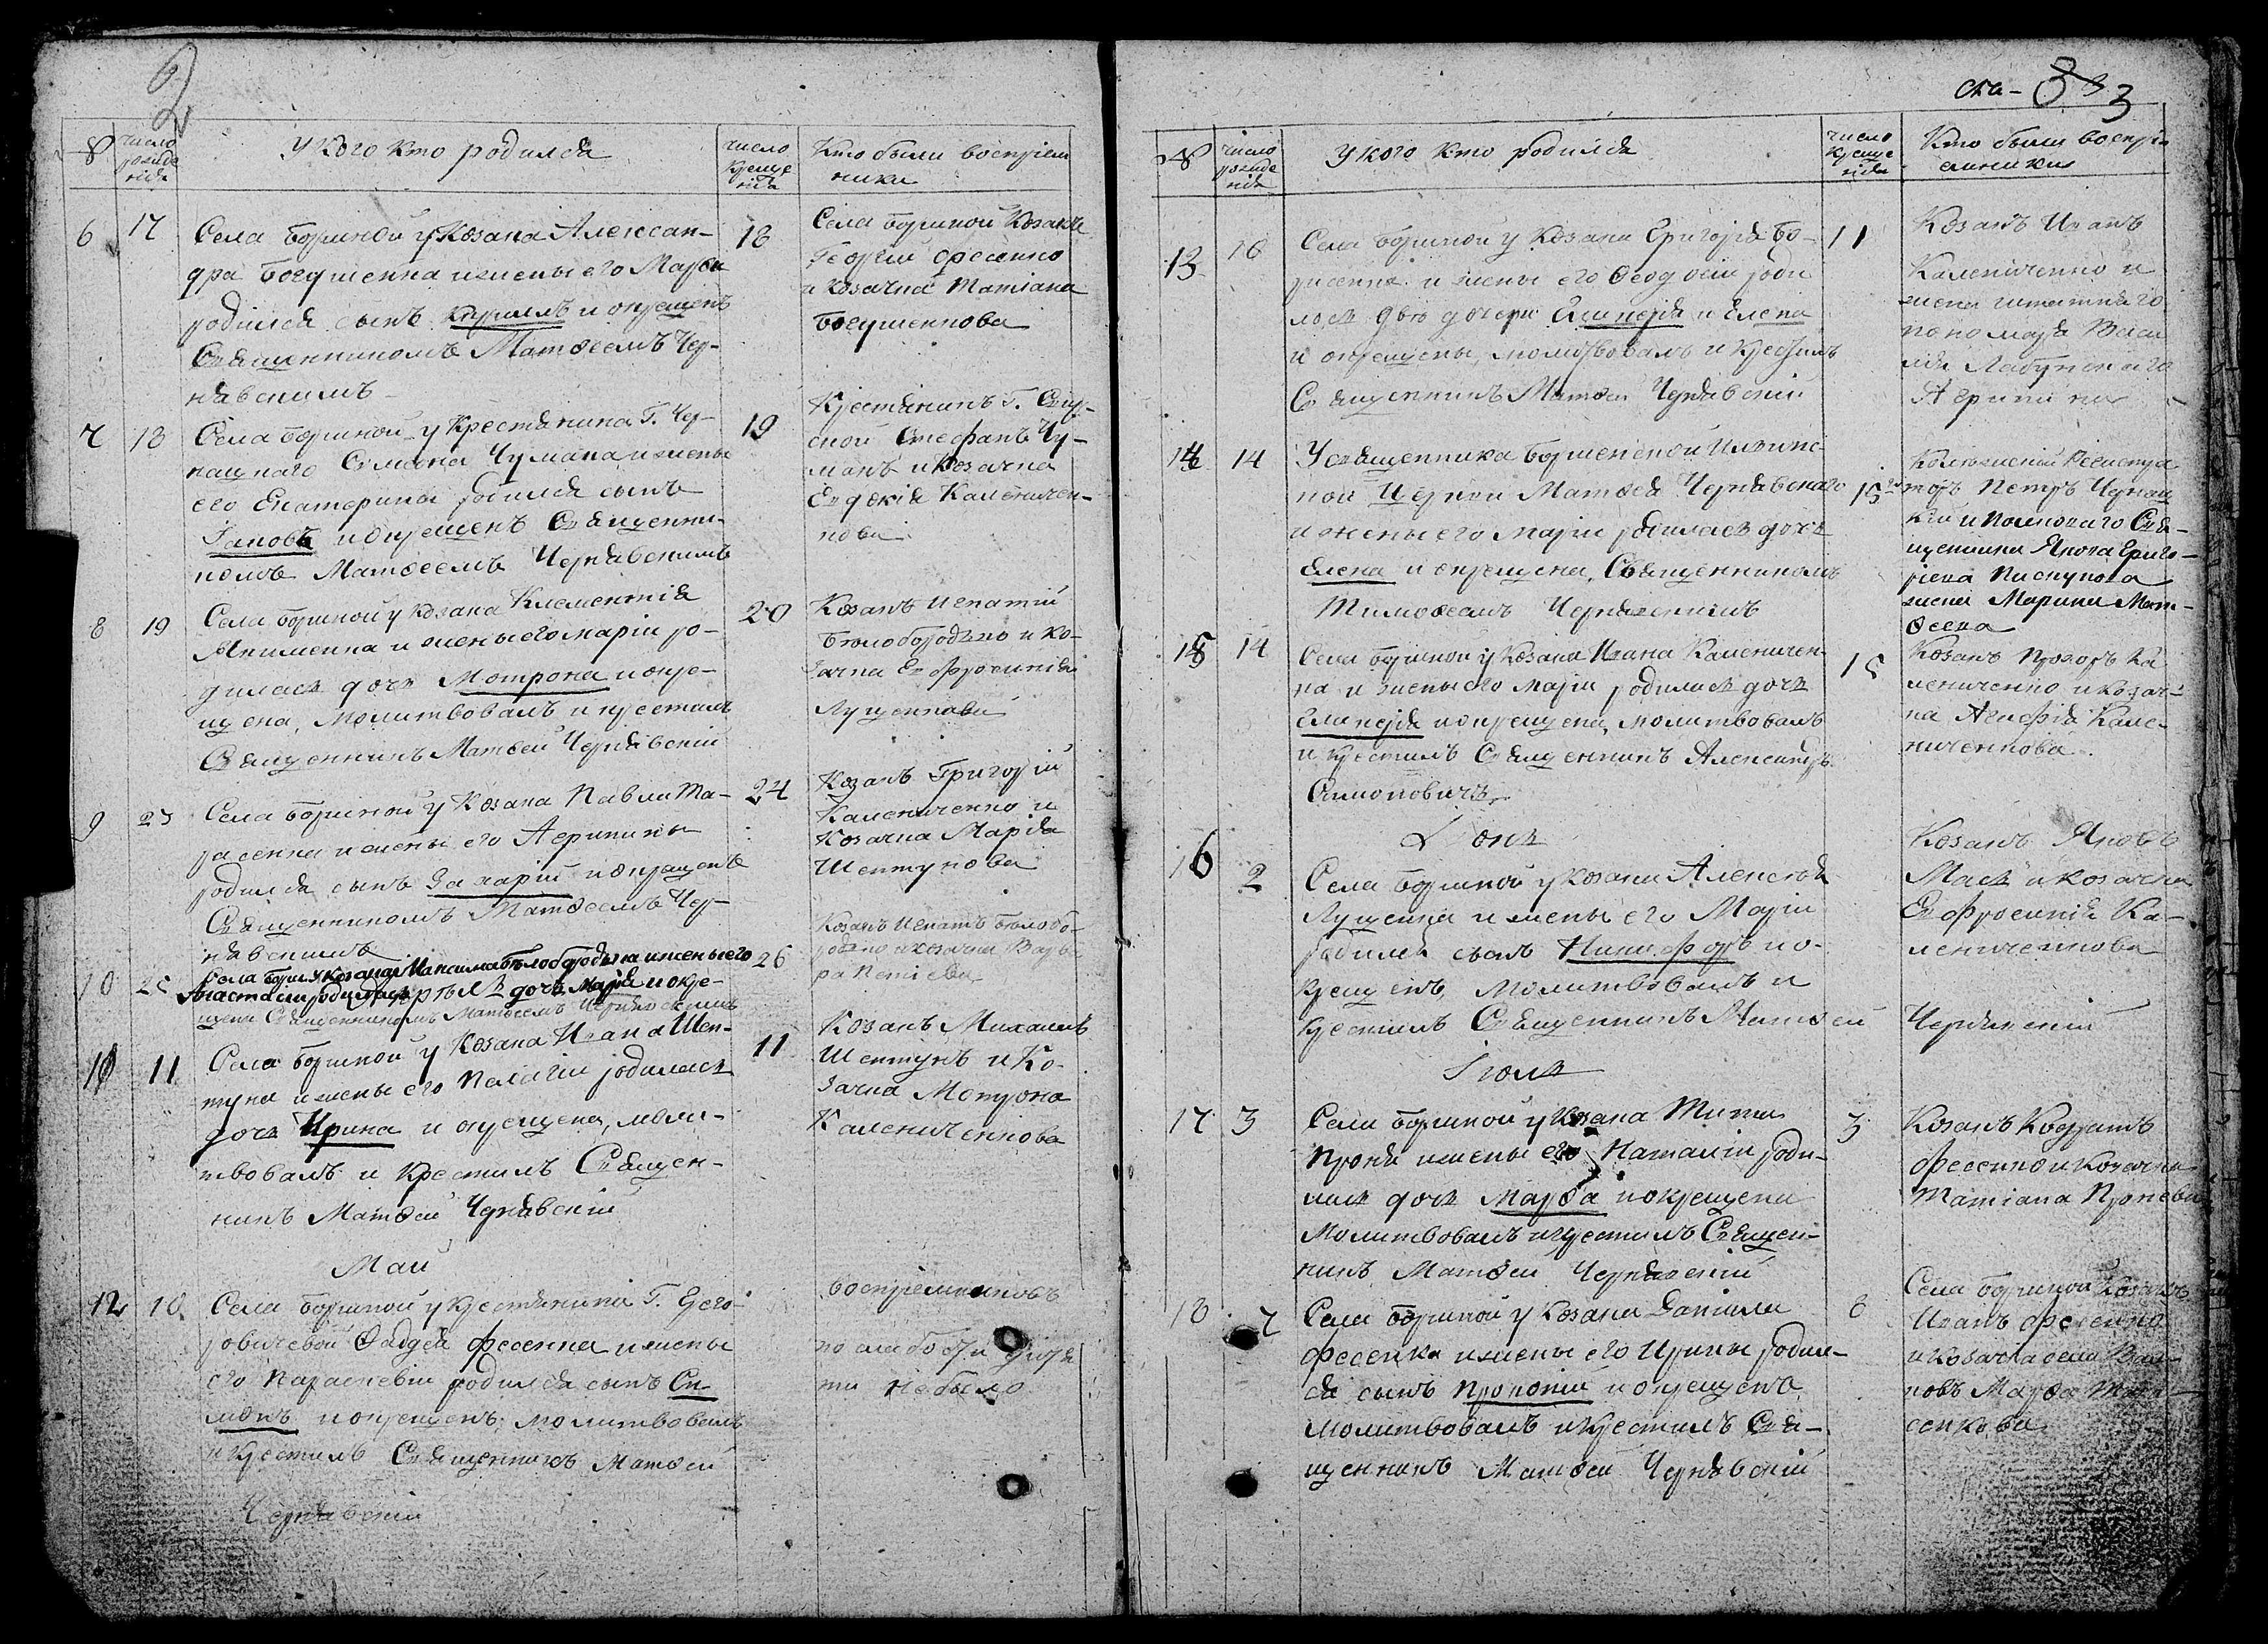 2
№
число рожденія
у кого кто родился
число крещенія
Кто были воспріемники
6
17
Села Боршной у Козака Алексан-
дра Богушенка и жены его Марѳи
родился сынъ Кирилъ и окрещенъ
Священникомъ Матѳеемъ Чер-
нявскимъ
18
Села Боршной Козакъ
Георгій Фесенко
и козачка Татіана
Богушенкова
7
18
Села Боршной у Крестянина Г. Чер-
нацкаго Симиона Чумака и жены
его Екатерины родился сынъ
Іаковъ и окрещенъ Священни-
комъ Матѳеемъ Чернявскимъ
19
Крестянинъ Г.
ской Стефанъ Чу-
макъ и Козачка
Евдокія Каленичен-
кова
8
19
Села Боршной у козака Климентія
Якименка и жены его Маріи ро-
дилась дочь Мотрона и окре-
щена, молитвовалъ и крестилъ
Священникъ Матѳей Чернявскій
20
Козакъ Ипатій
Белобородько и ко-
зачка Евфросинія
Лущенкова
9
23
Села Боршной у Козака Павла Та-
расенка и жены его Агрипины
родился сынъ Захарій и окрещенъ
Священникомъ Матѳеемъ Чер-
нявскимъ
24
Козакъ Григорій
Калениченко и
Козачка Марія
Шептунова
10
25
Села Борш. у козака Максима Белобородька и жены его
Анастасіи родилась дочь Марія и окре-
щена Священникомъ Матѳеемъ Чернявскимъ
26
Козакъ Ипатъ Белобо-
родько и козачка Варва-
ра
Апрѣль
11
11
Села Боршной у Козака Ивана Шеп-
туна и жены его Палагіи родилась
дочь Ирина и окрещена, моли-
твовалъ и Крестилъ Священ-
никъ Матѳей Чернявскій
11
Козакъ Михаилъ
Шептунъ и Ко-
зачка Мотрона
Калениченкова
Май
12
10
Села Боршной у крестянина Г.
ровичевой Фаддея Фесенка и жены
его Параскевіи родился сынъ Си-
монъ и окрещенъ, молитвовалъ
и Крестилъ Священникъ Матѳей
Чернявскій
воспріемниковъ
по слабости дитя
ти небыло
3
№
число рожденія
у кого кто родился
число крещенія
Кто были воспріемники
13
10
Села Боршной у Козака Григорія Бо-
рисенка и жены его Ѳеодосіи роди
лось двѣ дочери Гликерія и Елена
и окрещены, молитвовалъ и Крестилъ
Священникъ Матѳей Чернявскій
11
Козакъ Иванъ
Калениченко и
жена штатнаго
пономаря Васи
лія Лабунскаго
Агрипина
14
14
У священника Боршенской Ильинс-
кой Церкви Матѳея Чернявскаго
и жены его Маріи родилась дочь
Елена и окрещена, Священникомъ
Тимоѳеемъ Чернявскимъ
15
Коллежскій Регистра
торъ Петръ Чернац
кій и покойнаго Свя-
щенника Якова Григо-
рієва Пискунова
жена Марина Мат-
ѳеева
15
14
Села Боршной у Козака Ивана Каленичен-
ка и жены его Маріи родилась дочь
Гликерія и окрещена, молитвовалъ
и крестилъ Священникъ Александръ
Симоновичъ
15
Козакъ Прохоръ Ка
лениченко и козач-
ка Агафія Кале-
ниченкова
Іюнь
16
2
Села Боршной у козака Алексѣя
Лущенка и жены его Маріи
родился сынъ Никифоръ и о-
крещенъ, Молитвовалъ и
Крестилъ Священникъ Матѳей
Чернявскій
Козакъ Яковъ
Мась и козачка
Евфросинія Ка-
лениченкова
Іюль
17
3
Села Боршной у Козака Тита
Проня и жены его Наталіи роди-
лась дочь Марѳа и окрещена
Молитвовалъ и крестилъ Священ-
никъ Матѳей Чернявскій
3
Козакъ Кодратъ
Фесенко и Козачка
Татіана Пронева
18
7
Села Боршной у Козака Даніила
Фесенка и жены его Ирины родил-
ся сынъ Прокопій и окрещенъ
Молитвовалъ и Крестилъ Свя-
щенникъ Матѳей Чернявскій
8
Села Боршной Козакъ
Иванъ Фесенко
и козачка села
Марѳа
сенкова